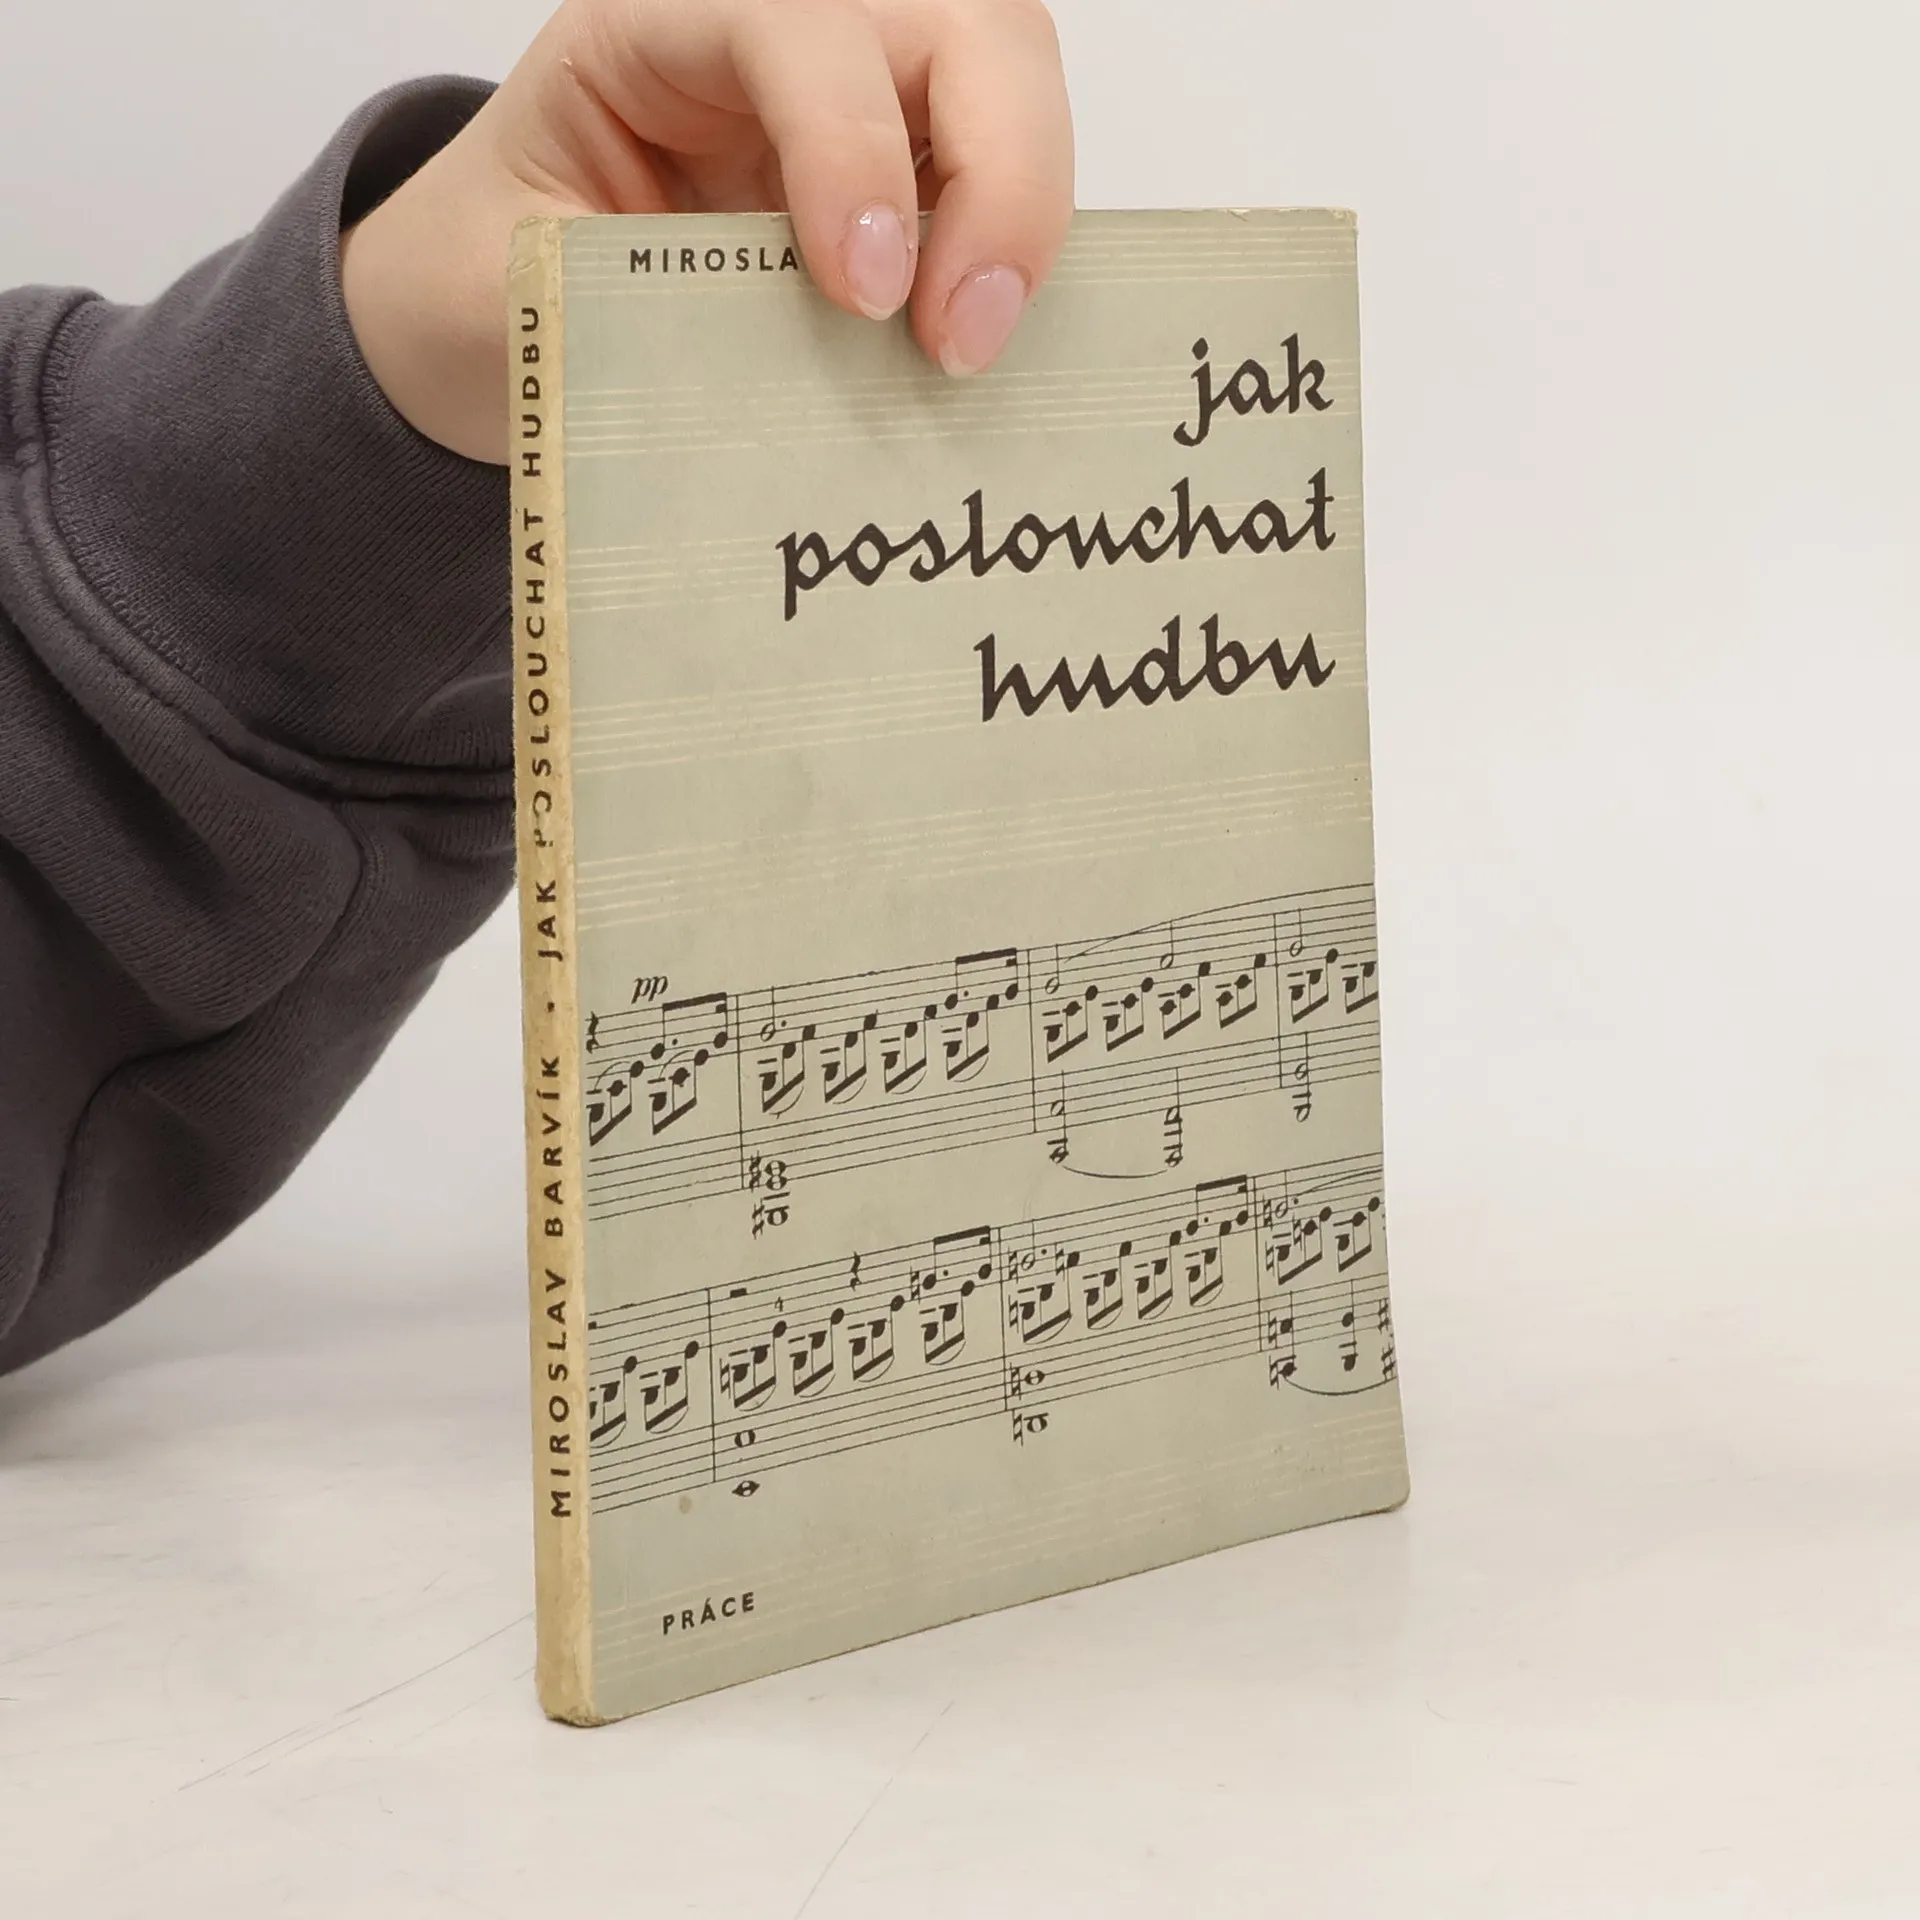 MIROSLA
jak
poslouchat
hudbu
pp
4
PRÁCE
MIROSLAV BARVÍK · JAK POSLOUCHAT HUDBU